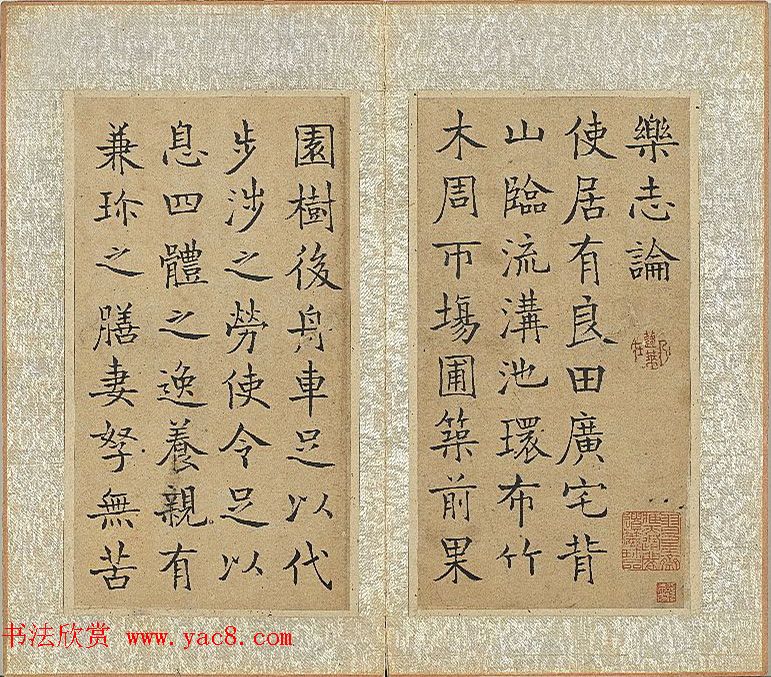 樂志論
使居有良田廣宅背
山臨流溝池環布竹
木周帀場圃築前果
園樹後舟車足以代
步涉之勞使令足以
息四體之逸養親有
兼珎之膳妻孥無苦
书法欣赏 www.yac8.com